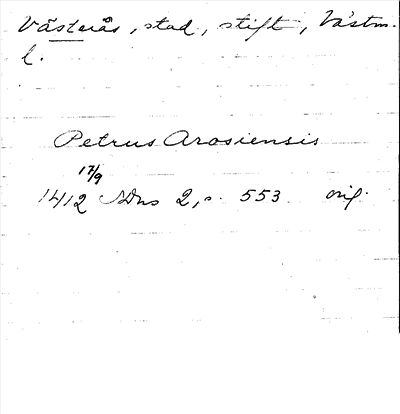 Västerås, stad, stift, Västm.
l.
Petrus Arosiensis
17/9
1412 SDns 2, s. 553 orig.